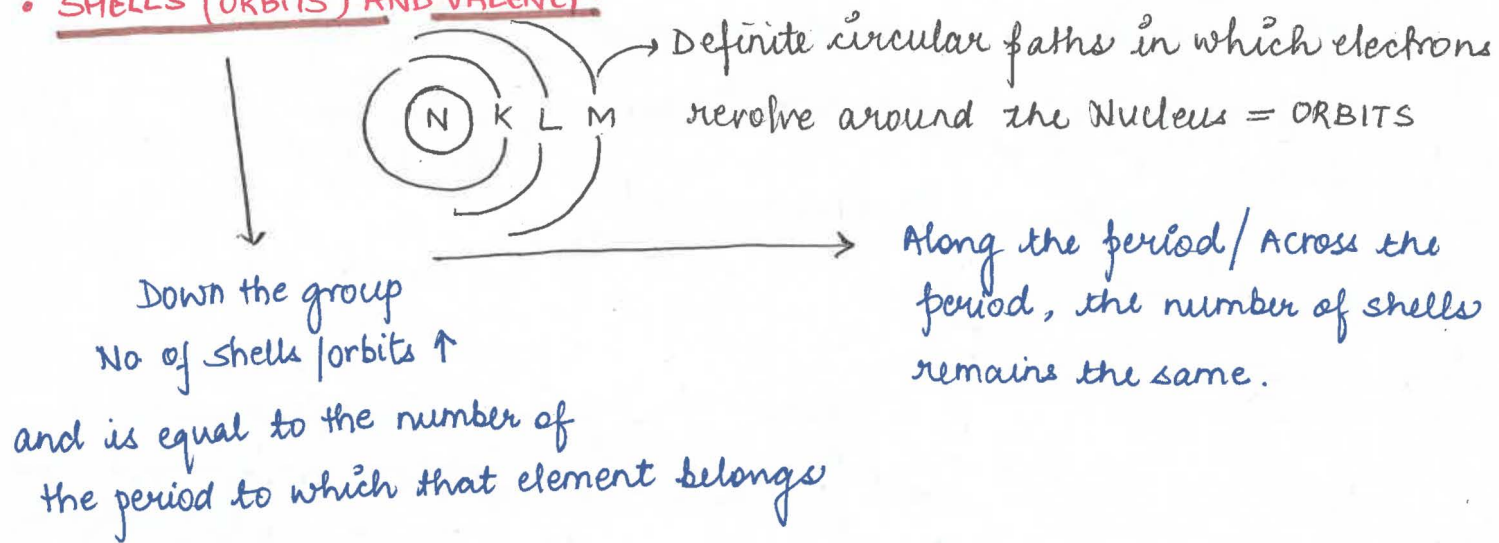 • SHELLS (ORBITS) AND VALENCY
N K L M
Definite circular paths in which electrons
revolve around the Nucleus = ORBITS
Down the group
No of shells /orbits ↑
and is equal to the number of
the period to which that element belongs
Along the period/Across the
period, the number of shells
remains the same.